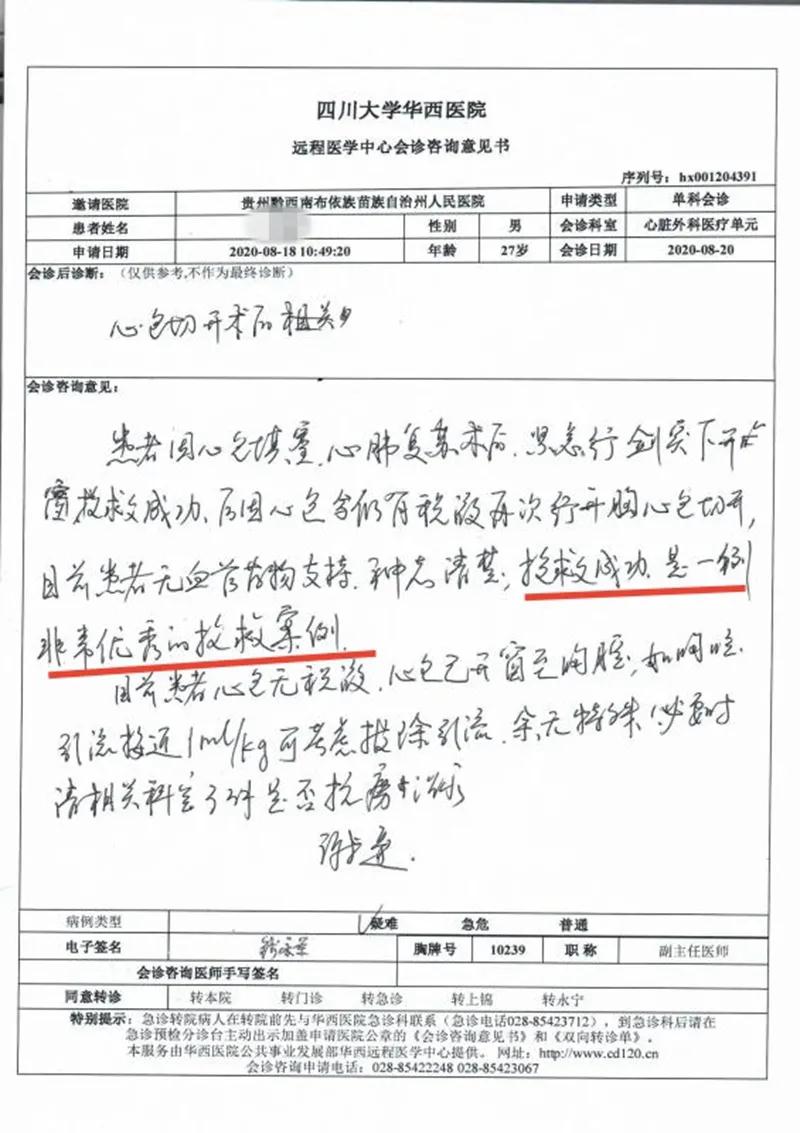 四川大学华西医院
远程医学中心会诊咨询意见书
序列号：hx001204391
邀请医院 贵州黔西南布依族苗族自治州人民医院 申请类型 单科会诊
患者姓名 性别 男 会诊科室 心脏外科医疗单元
申请日期 2020-08-18 10:49:20 年龄 27岁 会诊日期 2020-08-20
会诊后诊断：（仅供参考,不作为最终诊断）
心包切开术后相关
会诊咨询意见：
患者因心包填塞、心肺复苏术后，紧急行剑突下开
窗抢救成功、后因心包含仍有积液再次行开胸心包切开，
目前患者无血管药物支持，神志清楚；抢救成功，是一例
非常优秀的抢救案例．
目前患者心包无积液，心包已开窗至胸腔，如胸腔
引流接近1ml/kg可考虑拔除引流，余无特殊，必要时
请相关科室 是否抗痨
病例类型 疑难 急危 普通
电子签名 胸牌号 10239 职 称 副主任医师
会诊咨询医师手写签名
同意转诊 转本院 转门诊 转急诊 转上锦 转永宁
特别提示：急诊转院病人在转院前先与华西医院急诊科联系（急诊电话028-85423712），到急诊科后请在
急诊预检分诊台主动出示加盖申请医院公章的《会诊咨询意见书》和《双向转诊单》。
本服务由华西医院公共事业发展部华西远程医学中心提供。 网址：http://www.cd120.cn
会诊咨询申请电话：028-85422248 028-85423067